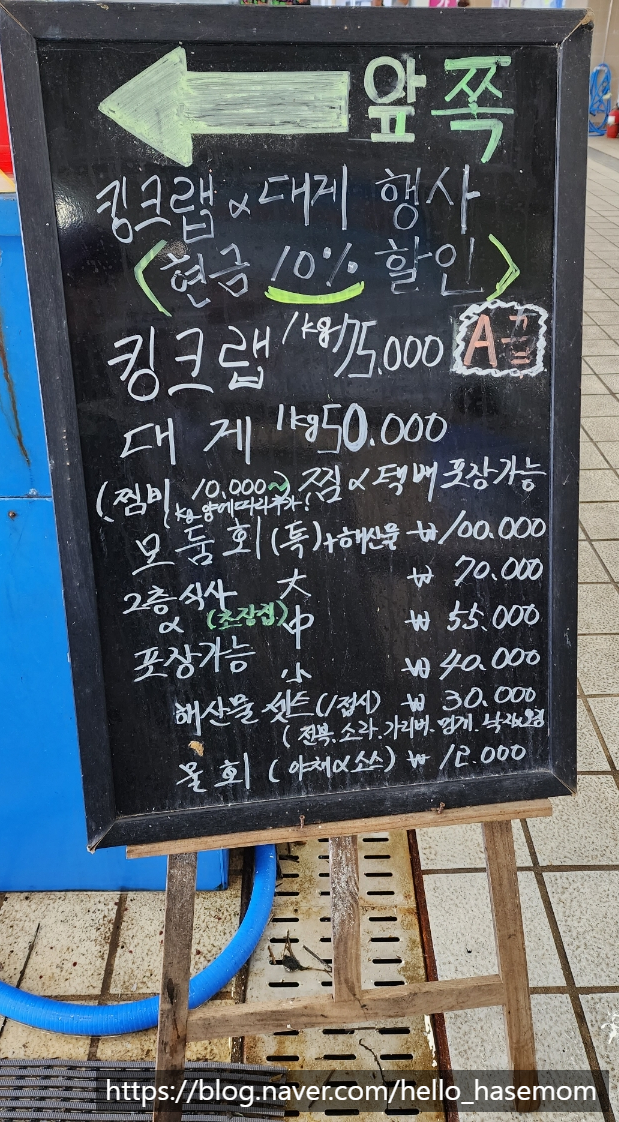 앞쪽
킹크랩 & 대게 행사
<현금 10% 할인>
킹크랩 1kg 75.000 A급
대게 1kg 50.000
(찜비 10.000~) 찜 & 택배 포장가능
(kg 양에따라 추가)
모둠회(특)+해산물 ₩100.000
大 ₩ 70.000
2층식사 & (초장집) 中 ₩ 55.000
포장가능 小 ₩ 40.000
해산물 셋트(1접시) ₩ 30.000
(전복.소라.가리비.멍게.
물회 (야채&소스) ₩ 12.000
https://blog.naver.com/hello_hasemom